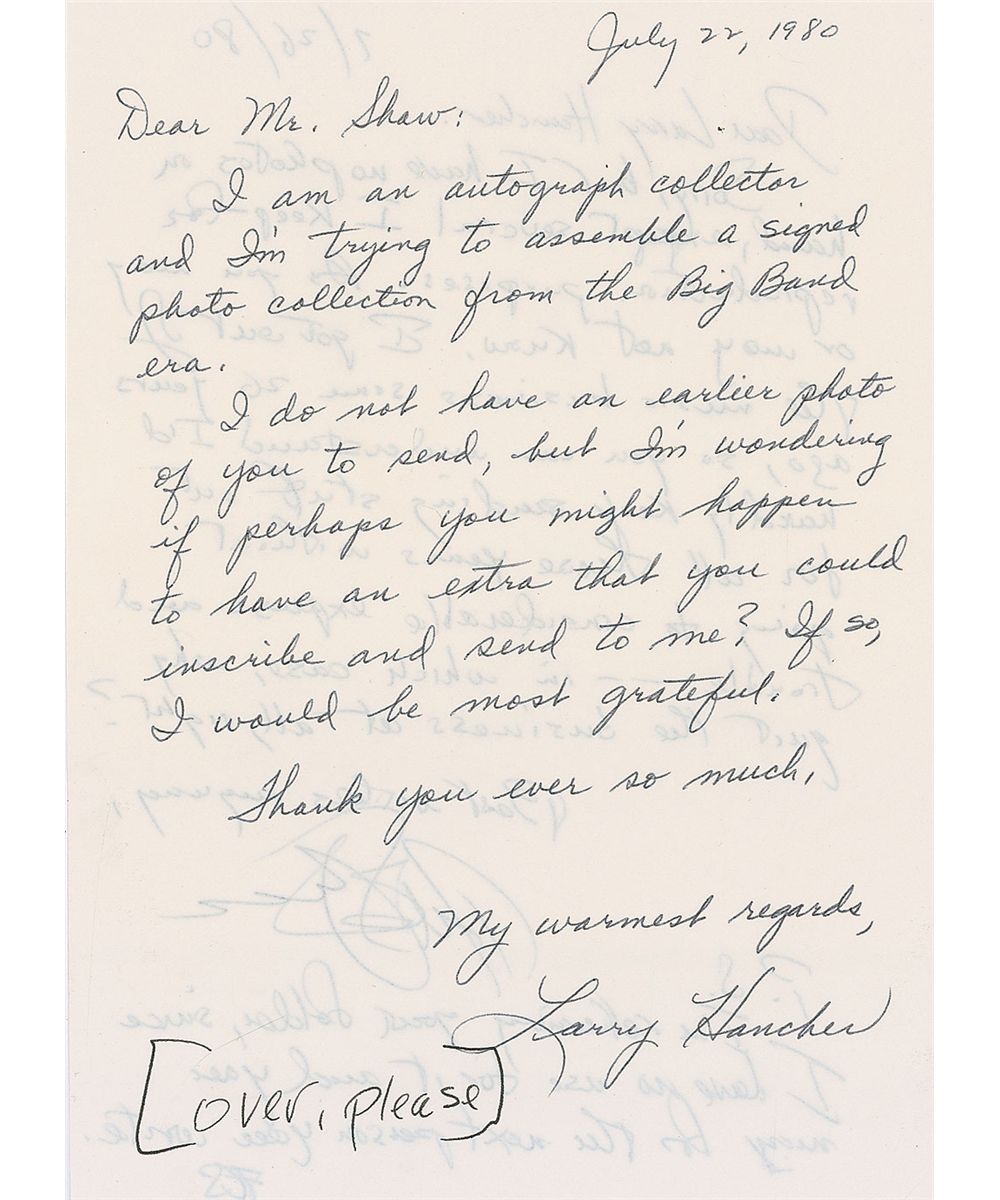 July 22, 1980
Dear Mr. Shaw:
I am an autograph collector
and I'm trying to assemble a signed
photo collection from the Big Band
era.
I do not have an earlier photo
of you to send, but I'm wondering
if perhaps you might happen
to have an extra that you could
inscribe and send to me? If so,
I would be most grateful.
Thank you ever so much,
My warmest regards,
Larry Hancher
[over, please]